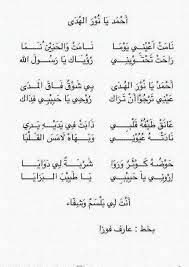 أَحْمَد يَا نُوْرَ الهُدَى
نَامَتْ أَعْيُنِي يَوْمًا نَامَتْ وَالحَنِيْنُ نَمَا
رَاحَتْ تَحْتَوِيْنِي رُؤْيَاكَ يَا رَسُولَ اللهِ
أَحْمَد يَا نُوْرَ الهُدَى بِي شَوْقٌ فَاقَ المَدَى
عَيْنِي تَرْجُوْ أَنْ تَرَاكَ رُوْحِي يَا حَبِيْبِي فِدَاكَ
عَانَقَ طَيْفُهُ قَلْبِي ذَابَتْ فِي يَدَيْهِ يَدِي
يَا حَبِيْبِي لَامَسَ القَلْبَ
حَوْضُهُ كَوْثَرٌ شَرْبَةٌ لِي دَوَايَا
اِرْوِنِي يَا حَبِيْبِي يَا طَبِيْبَ البَرَايَا
أَنْتَ لِي بَلْسَمٌ وَشِفَاء
بخط : عارف فوزا